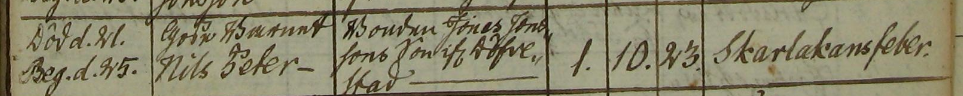 Död. d. 21. Gosse Barnet Bonden Jöns Jöns-
Beg. d. 25. Nils Peter – sons Son if. Tofve- 1. 10. 23. Skarlakansfeber.
stad